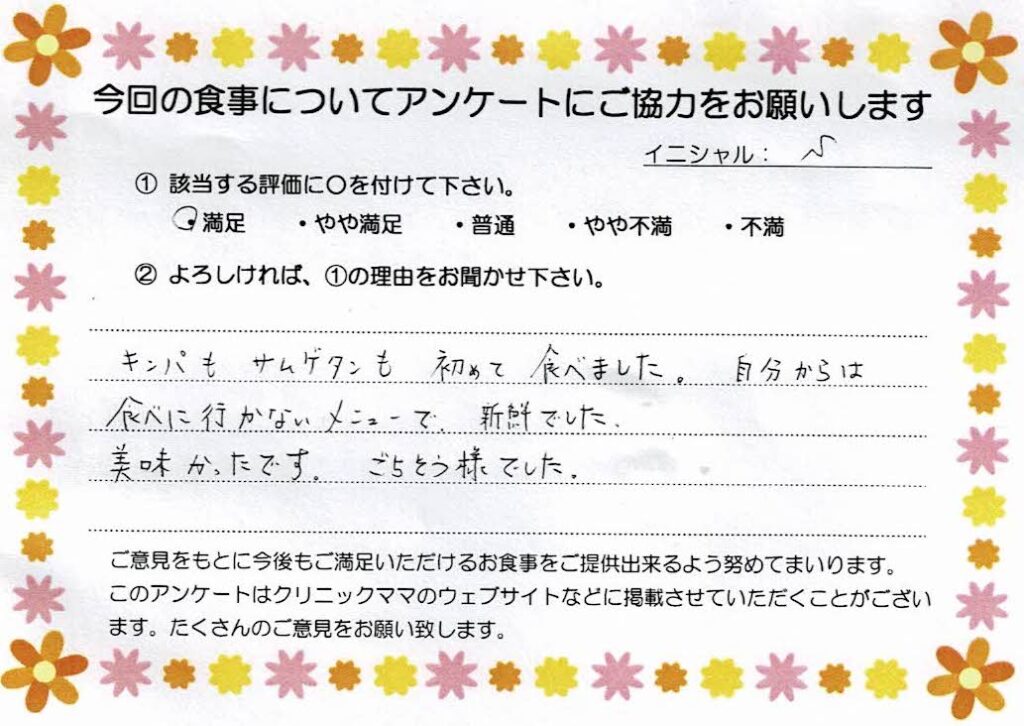 今回の食事についてアンケートにご協力をお願いします
イニシャル：
① 該当する評価に〇を付けて下さい。
・満足 ・やや満足 ・普通 ・やや不満 ・不満
② よろしければ、①の理由をお聞かせ下さい。
キンパも サムゲタンも 初めて 食べました。 自分からは
食べに行かないメニューで、新鮮でした、
美味かったです。 ごちそう様でした。
ご意見をもとに今後もご満足いただけるお食事をご提供出来るよう努めてまいります。
このアンケートはクリニックママのウェブサイトなどに掲載させていただくことがござい
ます。たくさんのご意見をお願い致します。